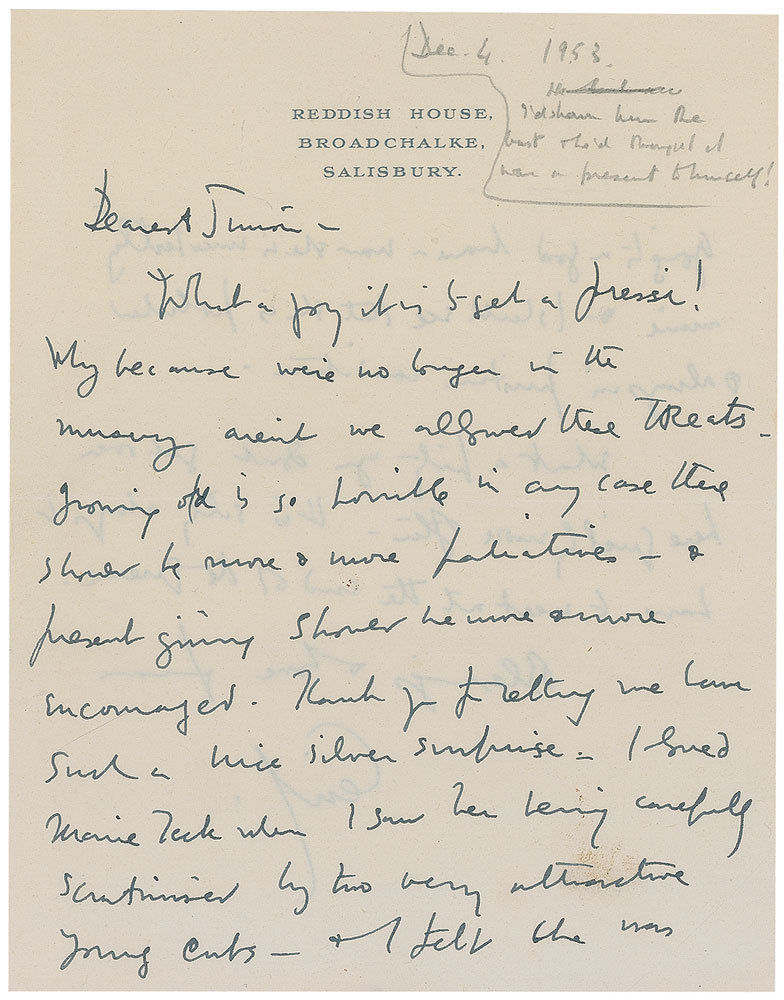 Dec. 4. 1953.
I'd shown him the
bust & he'd thought it
was a present to himself!
REDDISH HOUSE,
BROADCHALKE,
SALISBURY.
Dearest Simon –
What a joy it is to get a pressie!
Why because we're no longer in the
nursery aren't we allowed these TREATS –
growing old is so horrible in any case there
should be more & more paliatives – &
present giving should be more & more
encouraged. Thank you for letting me have
such a nice silver surprise – I loved
Marie Teck when I saw her being carefully
scrutinised by two very attractive
young cubs – & I felt she was